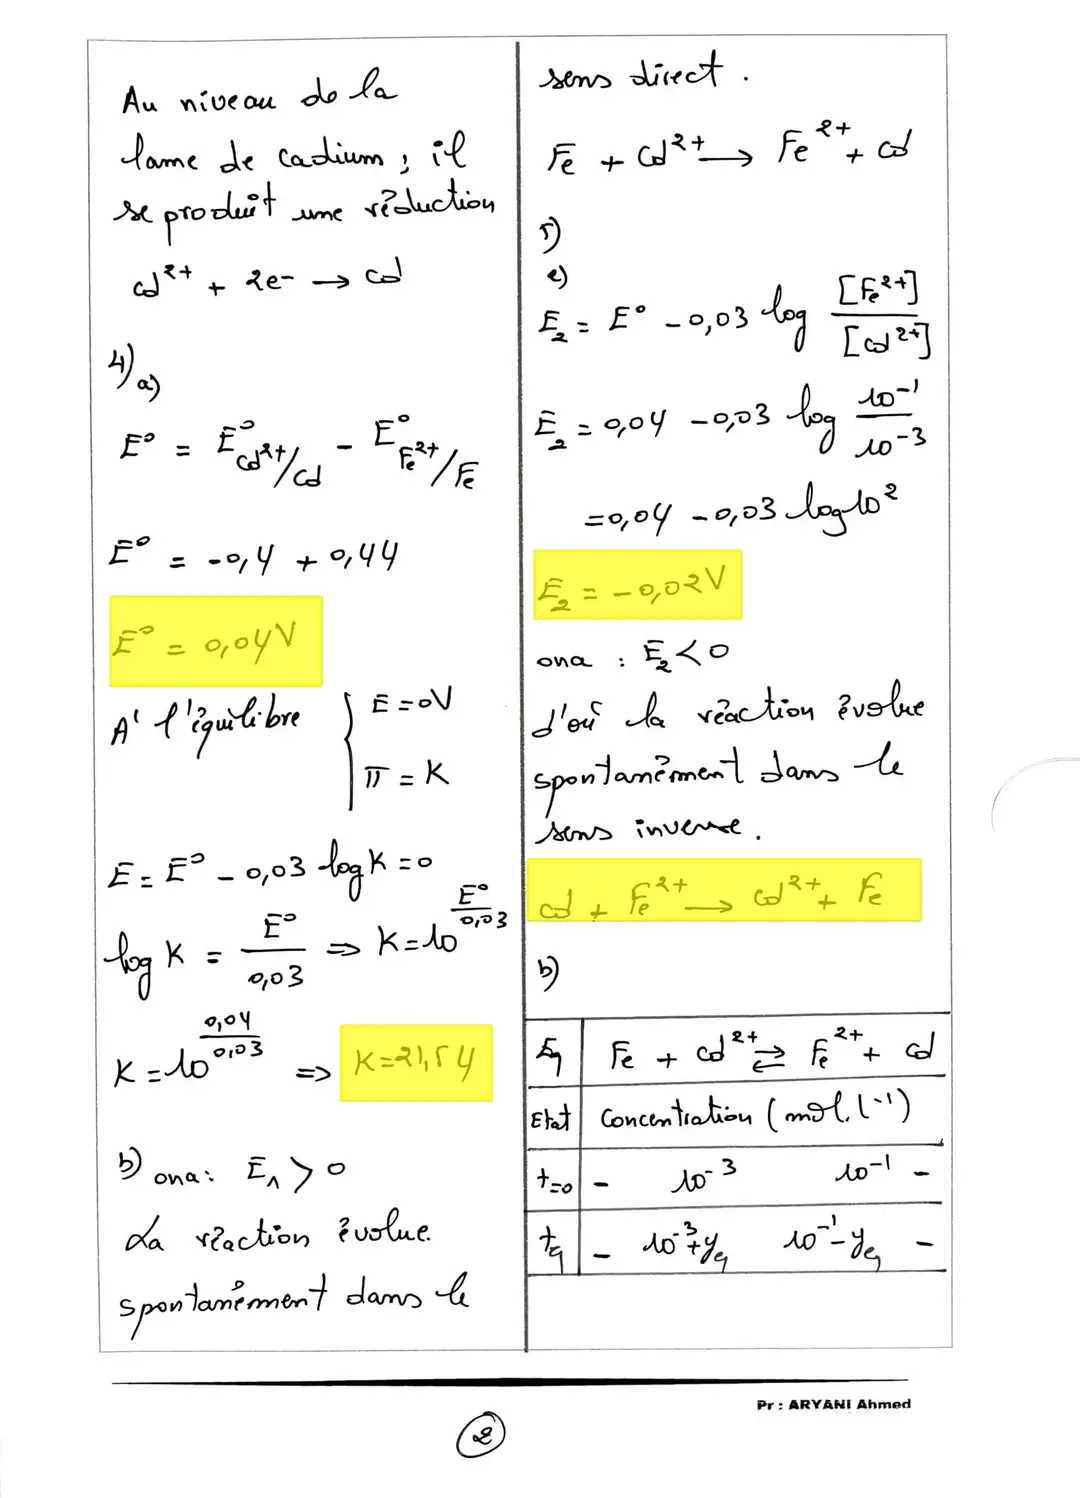 Au niveau de la
lame de cadium, il
se produit une réduction
Cd²⁺ + 2e- → Cd
4) a)
E° = E°Cd²⁺/Cd - E°Fe²⁺/Fe
E° = -0,4 + 0,44
E° = 0,04V
A' l'équilibre { E = 0V
π = K
E = E° - 0,03 log K = 0
log K = E°/0,03 ⇒ K = 10^(E°/0,03)
K = 10^(0,04/0,03) ⇒ K = 21,54
b) ona : E₁ > 0
La réaction évolue
spontanément dans le
sens direct .
Fe + Cd²⁺ → Fe²⁺ + Cd
5)
a)
E₂ = E° - 0,03 log [Fe²⁺]/[Cd²⁺]
E₂ = 0,04 - 0,03 log 10⁻¹/10⁻³
= 0,04 - 0,03 log 10²
E₂ = -0,02V
ona : E₂ < 0
d'où la réaction évolue
spontanément dans le
sens inverse .
Cd + Fe²⁺ → Cd²⁺ + Fe
b)
Eq Fe + Cd²⁺ ⇌ Fe²⁺ + Cd
Etat Concentration (mol.l⁻¹)
t=0 - 10⁻³ 10⁻¹ -
téq - 10⁻³+yéq 10⁻¹-yéq -
Pr : ARYANI Ahmed
2